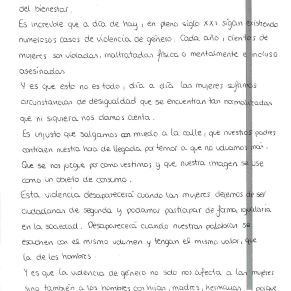 del bienestar.
Es increíble que a día de hoy, en pleno siglo XXI sigan existiendo
numerosos casos de violencia de género. Cada año, cientos de
mujeres son violadas, maltratadas física o mentalmente e incluso
asesinadas.
Y es que esto no es todo, día a día las mujeres sufrimos
circunstancias de desigualdad que se encuentran tan normalizadas
que ni siquiera nos damos cuenta.
Es injusto que salgamos con miedo a la calle, que nuestros padres
controlen nuestra hora de llegada por temor a que no volvamos más.
Que se nos juzgue por como vestimos y que nuestra imagen se use
como un objeto de consumo.
Esta violencia desaparecerá cuando las mujeres dejemos de ser
ciudadanas de segunda y podamos participar de forma igualitaria
en la sociedad. Desaparecerá cuando nuestras palabras se
escuchen con el mismo volumen y tengan el mismo valor que
la de los hombres.
Y es que la violencia de género no solo nos afecta a las mujeres
sino también a los hombres con hijas, madres, hermanas porque